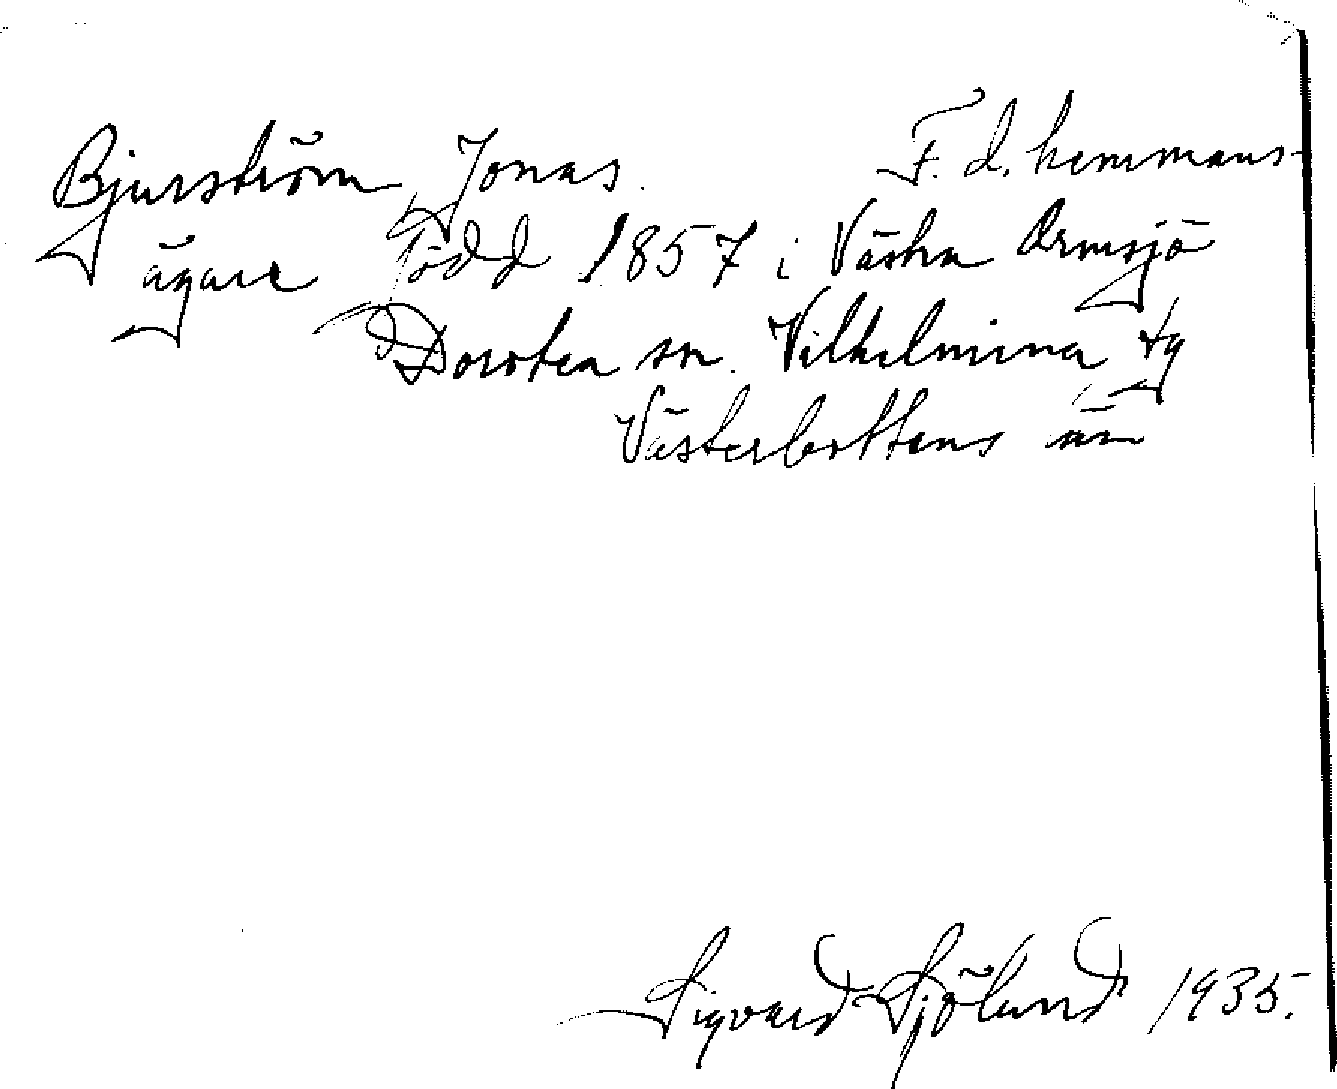 Bjurström, Jonas. F. d. hemmans-
ägare född 1857 i Västra Ormsjö
Dorotea sn. Vilhelmina tg
Västerbottens län
Sigvard Sjölund 1935.